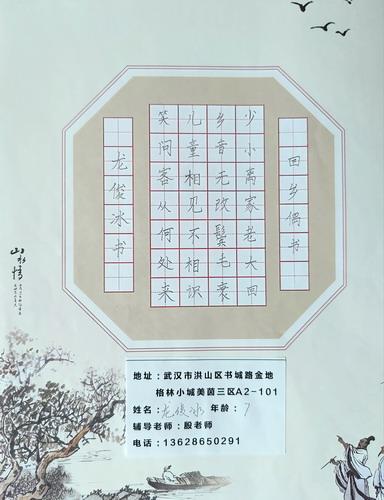 回乡偶书
少小离家老大回
乡音无改鬓毛衰
儿童相见不相识
笑问客从何处来
龙俊冰书
山水情
地址：武汉市洪山区书城路金地
格林小城美茵三区A2-101
姓名：龙俊冰 年龄：7
辅导老师：殷老师
电话：13628650291